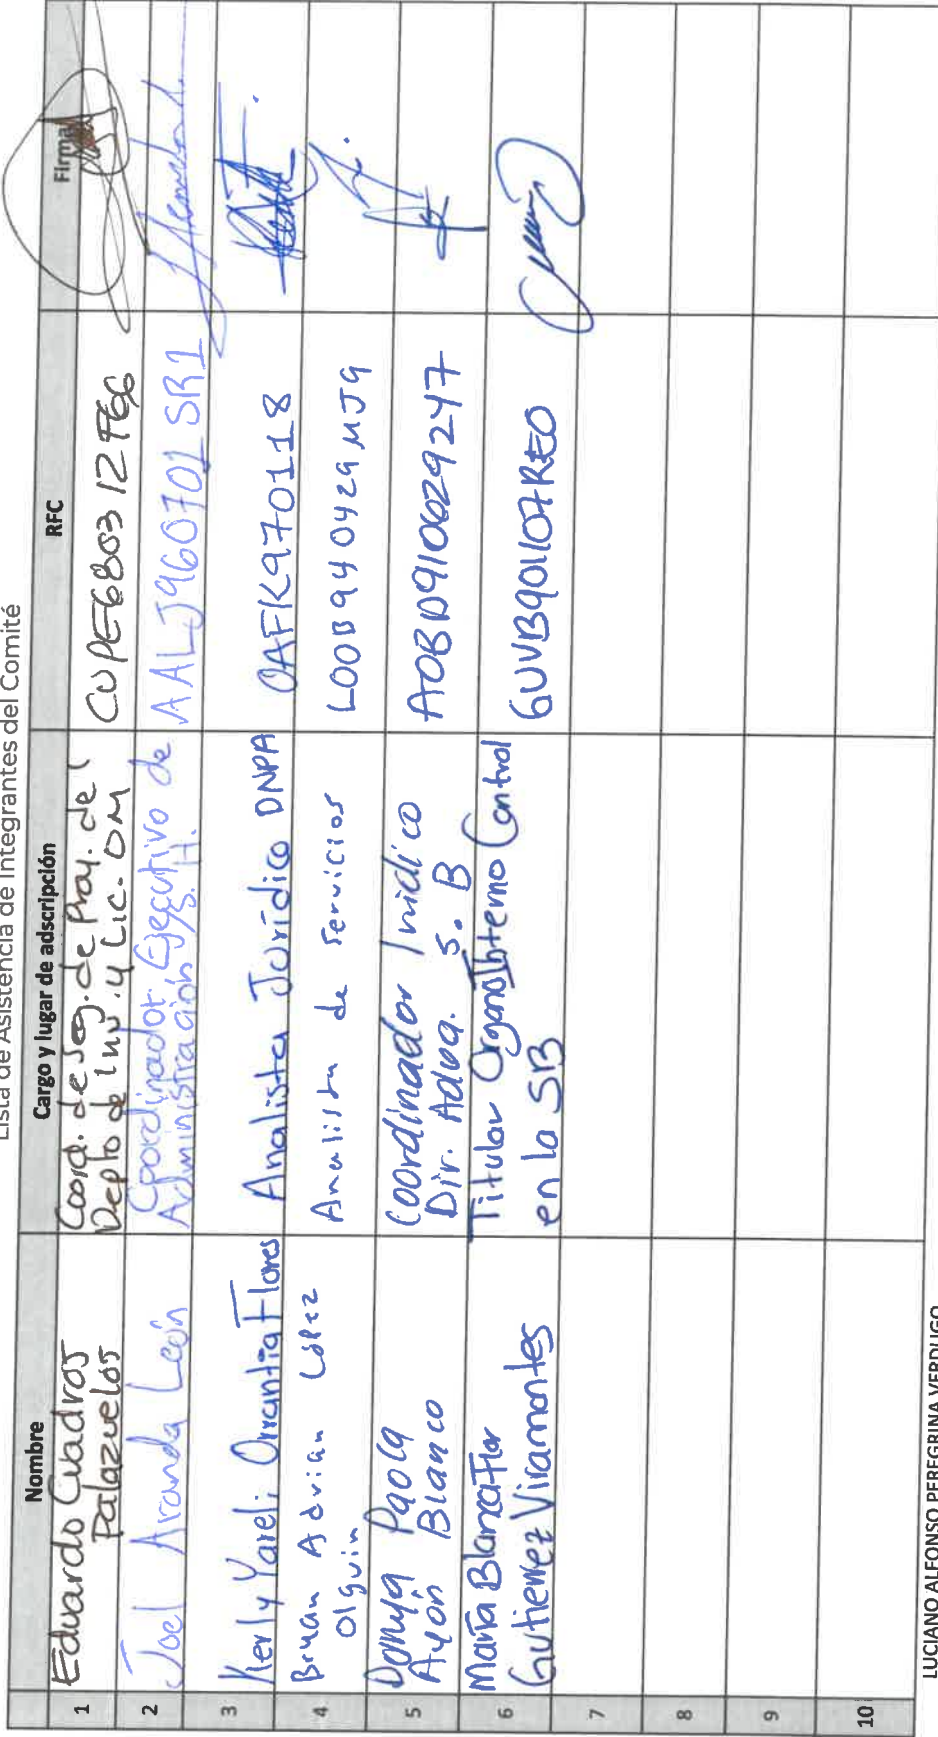 Lista de Asistencia de Integrantes del Comité
Nombre Cargo y lugar de adscripción RFC Firma
1 Eduardo Cuadros Palazuelos Coord. de Seg. de Proy. de Depto de Inv. y Lic. OM CUPE680312F66
2 Joel Aranda León Coordinador Ejecutivo de Administración S. H. AALJ960701SR1
3 Kerly Yareli Orrantia Flores Analista Jurídico DNPA OAFK970118
4 Bryan Adrian López Olguin Analista de Servicios LOOB940429MJ9
5 Donya Paola Ayón Blanco Coordinador Jurídico Dir. Adva. S. B AOBD910629247
6 María Blanca Flor Gutierrez Viramontes Titular Organo Interno Control en la SB GUVB901107RE0
7
8
9
10
LUCIANO ALFONSO PEREGRINA VERDUGO